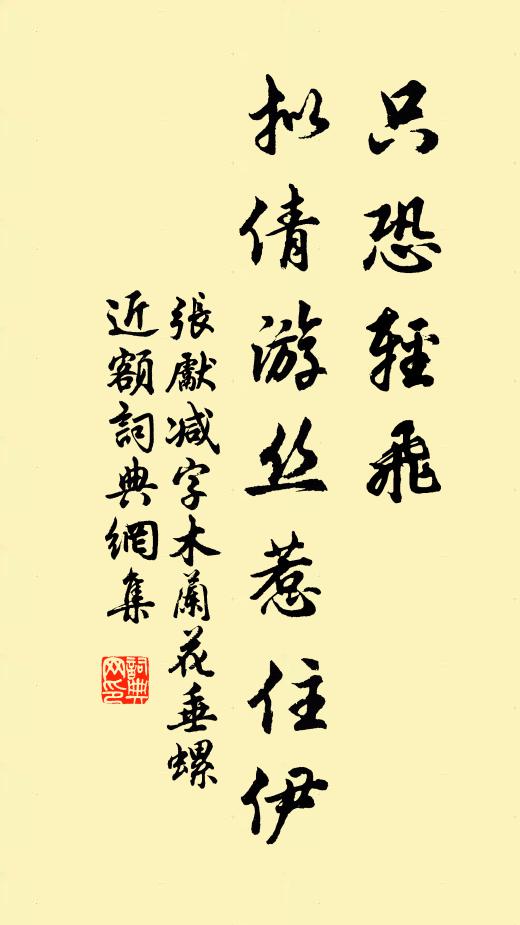 只恐輕飛
拟倩游丝惹住伊
張獻减字木蘭花垂螺
近額詞典網集
詞典网印